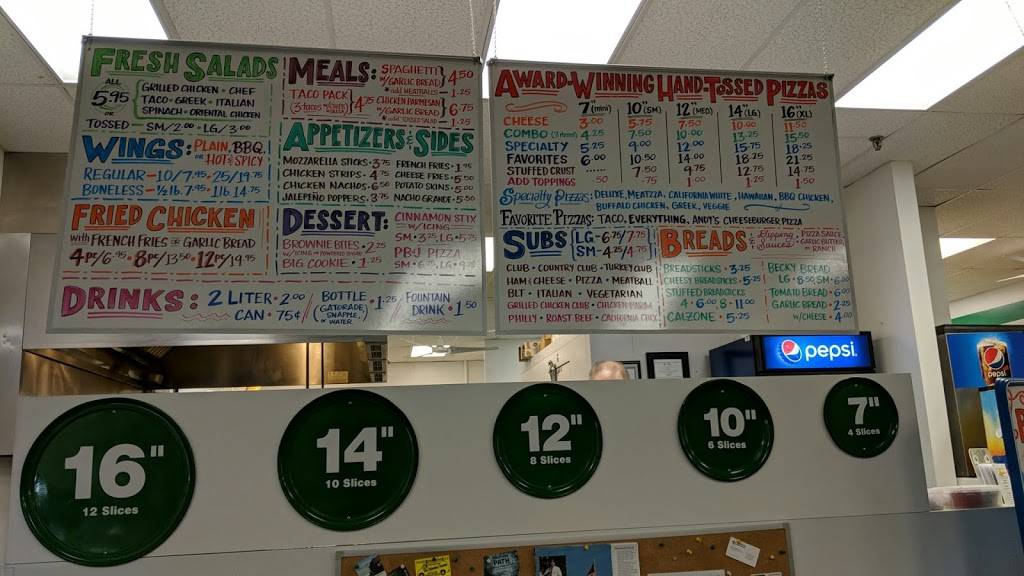 FRESH SALADS
ALL 5.95
GRILLED CHICKEN • CHEF
TACO • GREEK • ITALIAN
SPINACH • ORIENTAL CHICKEN
OR
TOSSED SM/2.00 • LG/3.00
WINGS: PLAIN, BBQ,
OR HOT & SPICY
REGULAR - 10/7.95 - 25/19.75
BONELESS - ½ lb. 7.95 - 1 lb. 14.75
FRIED CHICKEN
WITH FRENCH FRIES OR GARLIC BREAD
4pc/6.95 • 8pc/13.50 • 12pc/19.95
MEALS:
SPAGHETTI
W/GARLIC BREAD 4.50
add MEATBALLS 1.25
TACO PACK 4.75
CHICKEN PARMESAN
W/GARLIC BREAD 6.75
APPETIZERS & SIDES
MOZZARELLA STICKS • 3.75
CHICKEN STRIPS - 4.75
CHICKEN NACHOS • 6.50
JALAPEÑO POPPERS • 3.75
FRENCH FRIES • 1.95
CHEESE FRIES • 5.50
POTATO SKINS • 5.00
NACHO GRANDE • 5.50
DESSERT:
BROWNIE BITES • 2.25
BIG COOKIE • 1.25
CINNAMON STIX
W/ICING
SM • 3.25, LG • 5.75
PBJ PIZZA
DRINKS:
2 LITER • 2.00
CAN • 75¢
BOTTLE 1.25
(GATORADE,
SNAPPLE,
OR WATER)
FOUNTAIN
DRINK • 1.50
AWARD-WINNING HAND-TOSSED PIZZAS
7" (mini) 10" (SM) 12" (MED) 14" (LG) 16" (XL)
CHEESE 3.00 5.75 7.50 10.00 11.50
COMBO 4.25 7.50 10.00 13.25 15.50
SPECIALTY 5.25 9.00 12.00 15.75 18.25
FAVORITES 6.00 10.50 14.00 18.25 21.25
STUFFED CRUST 7.50 9.75 12.75 14.75
ADD TOPPINGS .50 .75 1.00 1.25 1.50
Specialty Pizzas: DELUXE, MEATZZA, CALIFORNIA WHITE, HAWAIIAN, BBQ CHICKEN,
BUFFALO CHICKEN, GREEK, VEGGIE
FAVORITE PIZZAS: TACO, EVERYTHING, ANDY'S CHEESEBURGER PIZZA
SUBS LG - 6.75/7.75
SM - 4.25/4.75
CLUB • COUNTRY CLUB • TURKEY CLUB
HAM & CHEESE • PIZZA • MEATBALL
BLT • ITALIAN • VEGETARIAN
GRILLED CHICKEN CLUB • CHICKEN PARM
PHILLY • ROAST BEEF • CALIFORNIA CHICK
BREADS
Dipping Sauces
PIZZA SAUCE
GARLIC BUTTER
or RANCH
BREADSTICKS • 3.25
CHEESY BREADSTICKS • 5.25
STUFFED BREADSTICKS
4 • 6.00 8 • 11.00
CALZONE • 5.25
BECKY BREAD
TOMATO BREAD • 6.00
GARLIC BREAD • 2.25
W/CHEESE • 4.00
pepsi
pepsi
16"
12 Slices
14"
10 Slices
12"
8 Slices
10"
6 Slices
7"
4 Slices
PATH